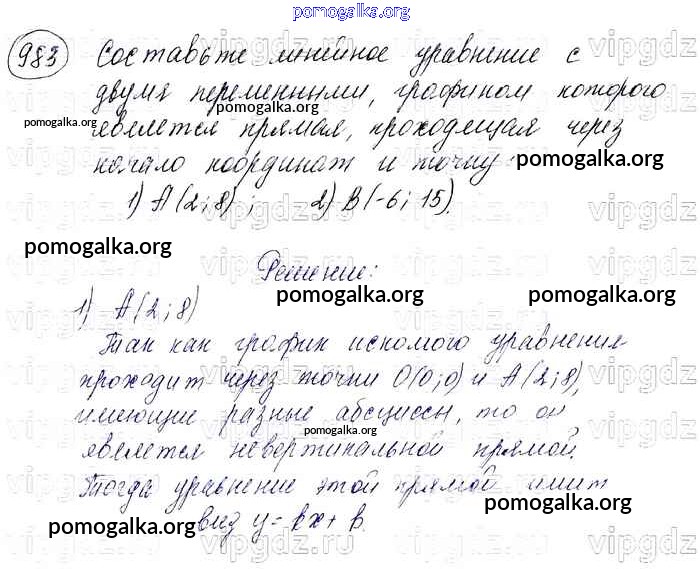 pomogalka.org
983 Составьте линейное уравнение с
двумя переменными, графиком которого
является прямая, проходящая через
начало координат и точку:
1) A(2; 8); 2) B(-6; 15).
Решение:
1) A(2; 8)
Так как график искомого уравнения
проходит через точки O(0; 0) и A(2; 8),
имеющие разные абсциссы, то он
является невертикальной прямой.
Тогда уравнение этой прямой имеет
вид y = kx + b.
pomogalka.org
pomogalka.org
pomogalka.org
pomogalka.org
pomogalka.org
pomogalka.org
pomogalka.org
pomogalka.org
pomogalka.org
pomogalka.org
pomogalka.org
vipgdz